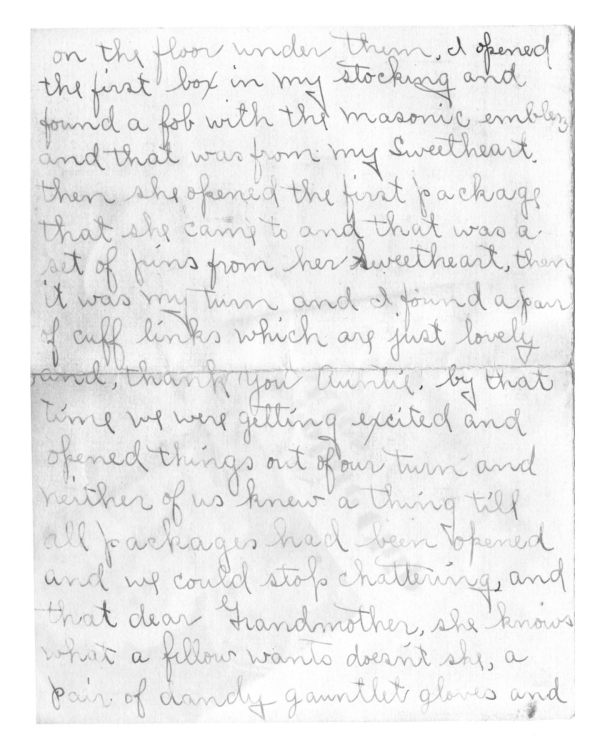 on the floor under them. I opened
the first box in my stocking and
found a fob with the masonic emblem
and that was from my Sweetheart.
then she opened the first package
that she came to and that was a
set of pins from her Sweetheart, then
it was my turn and I found a pair
of cuff links which are just lovely
and, thank you Auntie. by that
time we were getting excited and
opened things out of our turn and
neither of us knew a thing till
all packages had been opened
and we could stop chattering, and
that dear Grandmother, she knows
what a fellow wants doesn't she, a
pair of dandy gauntlet gloves and